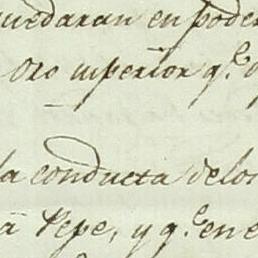 quedaran en poder
oro inferior q.e
la conducta de los
a Pepe, y q.e en e